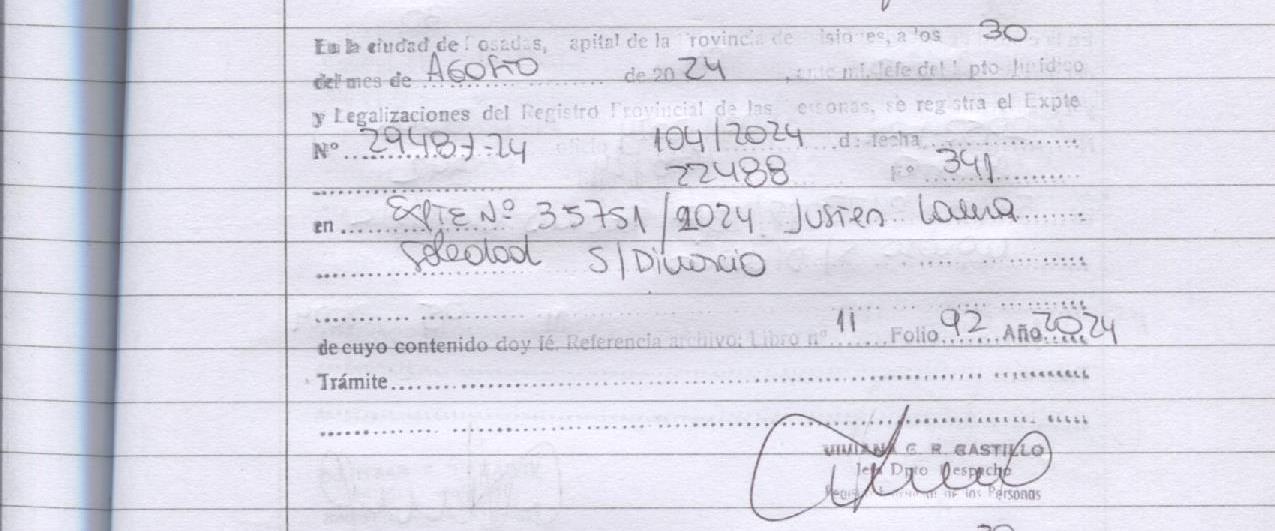 En la ciudad de Posadas, Capital de la Provincia de Misiones, a los 30
del mes de Agosto de 2024, ante mi, Jefe del Dpto Jurídico
y Legalizaciones del Registro Provincial de las Personas, se registra el Expte
Nº 29487-24 oficio 104/2024 de fecha
22488 Fº 341
en Expte Nº 35751/2024 Justen Laura
Soledad S/Divorcio
de cuyo contenido doy fé. Referencia archivo: Libro nº 11 Folio 92 Año 2024
Trámite
VIVIANA C. R. CASTILLO
Jefe Dpto Despacho
de las Personas
30